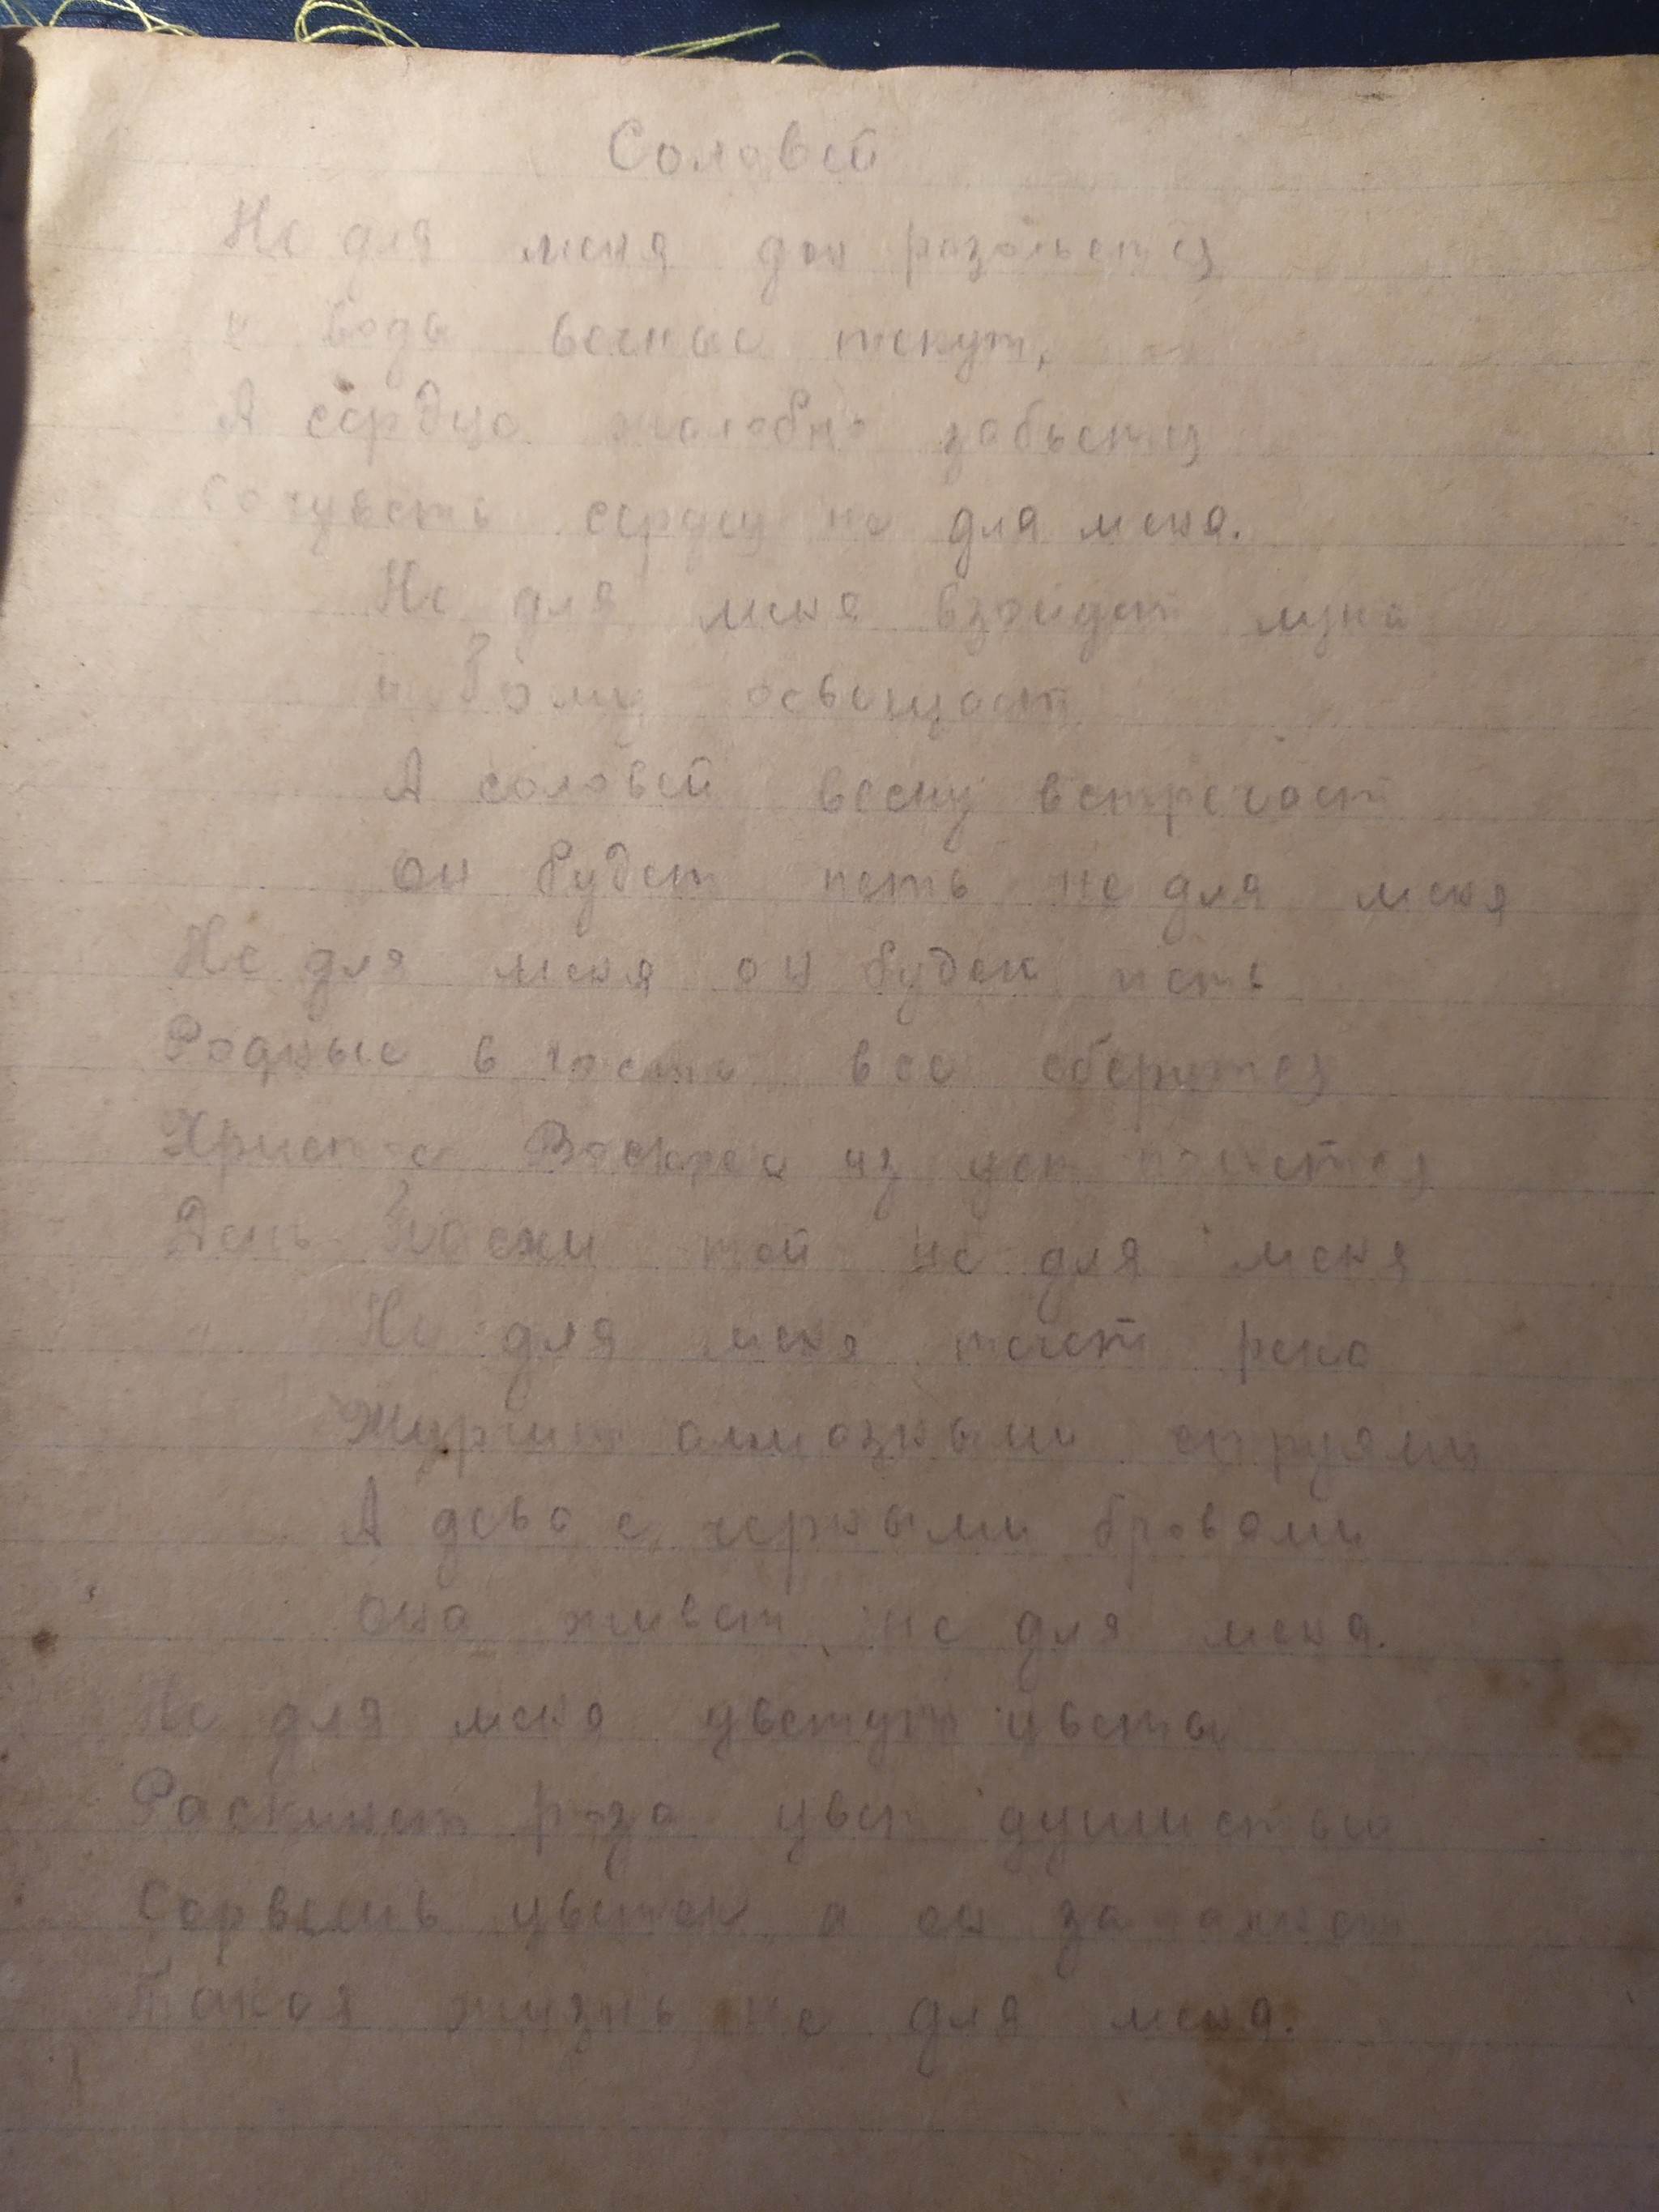 Соловей
Не для меня дон разольется
и воды вечные текут,
А сердце жалобно забьется
сердцу не для меня.
Не для меня взойдет луна
и освещает
А соловей весну встречает
он будет петь не для меня
Не для меня он будет петь
Родные в гости все сберутся
Христос Воскрес из уст польется
День Пасхи той не для меня
Не для меня течет река
Журчит алмазными струями
А дева с черными бровами
она живет не для меня.
Не для меня цветут цветы
Раскинет роза цвет душистый
Сорвешь цветок а он
Такая жизнь не для меня.